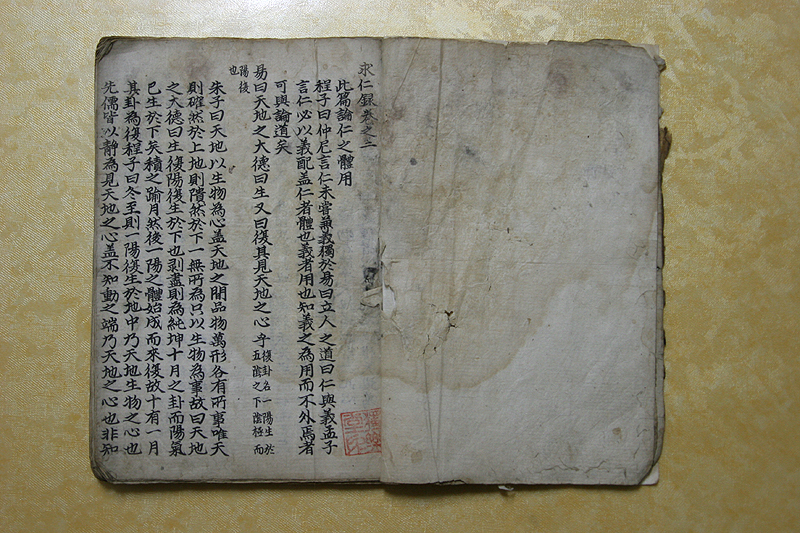 求仁錄卷之二
此篇論仁之體用
程子曰仲尼言仁未嘗兼義獨於易曰立人之道曰仁與義孟子
言仁必以義配盖仁者體也義者用也知義之為用而不外焉者
可與論道矣
易曰天地之大德曰生又曰復其見天地之心乎
復卦名一陽生於
五陰之下陰極而
陽復
也
朱子曰天地以生物為心盖天地之間品物萬形各有所事唯天
則確然於上地則隤然於下一無所為只以生物為事故曰天地
之大德曰生復陽復生於下也剥盡則為純坤十月之卦而陽氣
已生於下矣積之踰月然後一陽之體始成而來復故十有一月
其卦為復程子曰冬至則一陽復生於地中乃天地生物之心也
先儒皆以靜為見天地之心盖不知動之端乃天地之心也非知